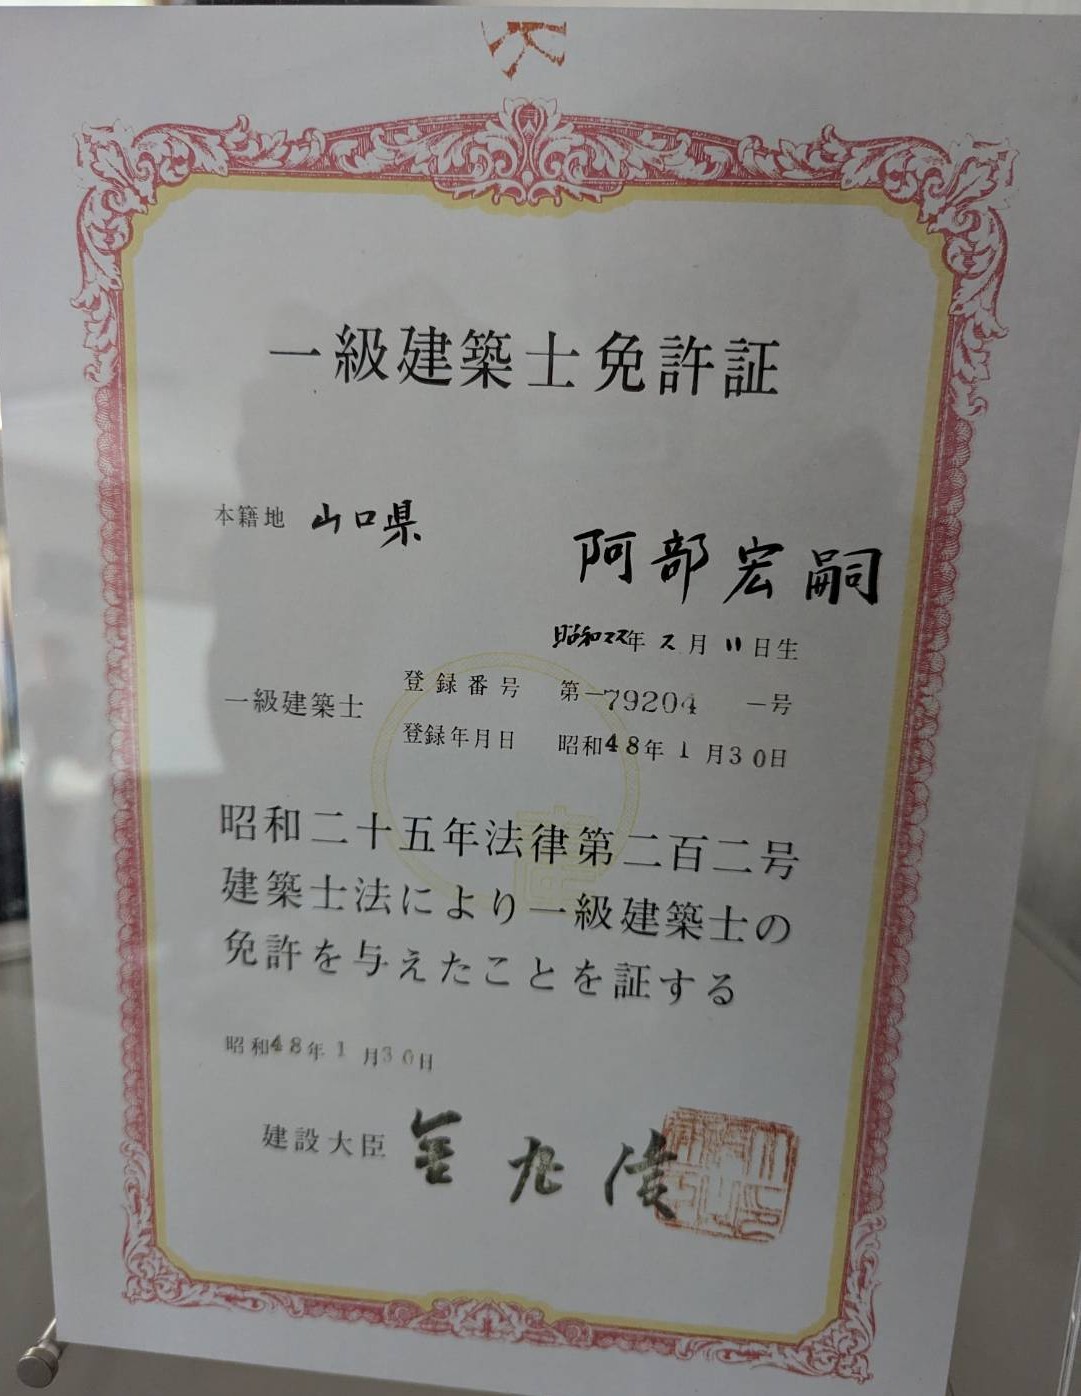 一級建築士免許証
本籍地 山口県
阿部宏嗣
昭和22年2月11日生
一級建築士 登録番号 第-79204-号
登録年月日 昭和48年1月30日
昭和二十五年法律第二百二号
建築士法により一級建築士の
免許を与えたことを証する
昭和48年1月30日
建設大臣 金丸信